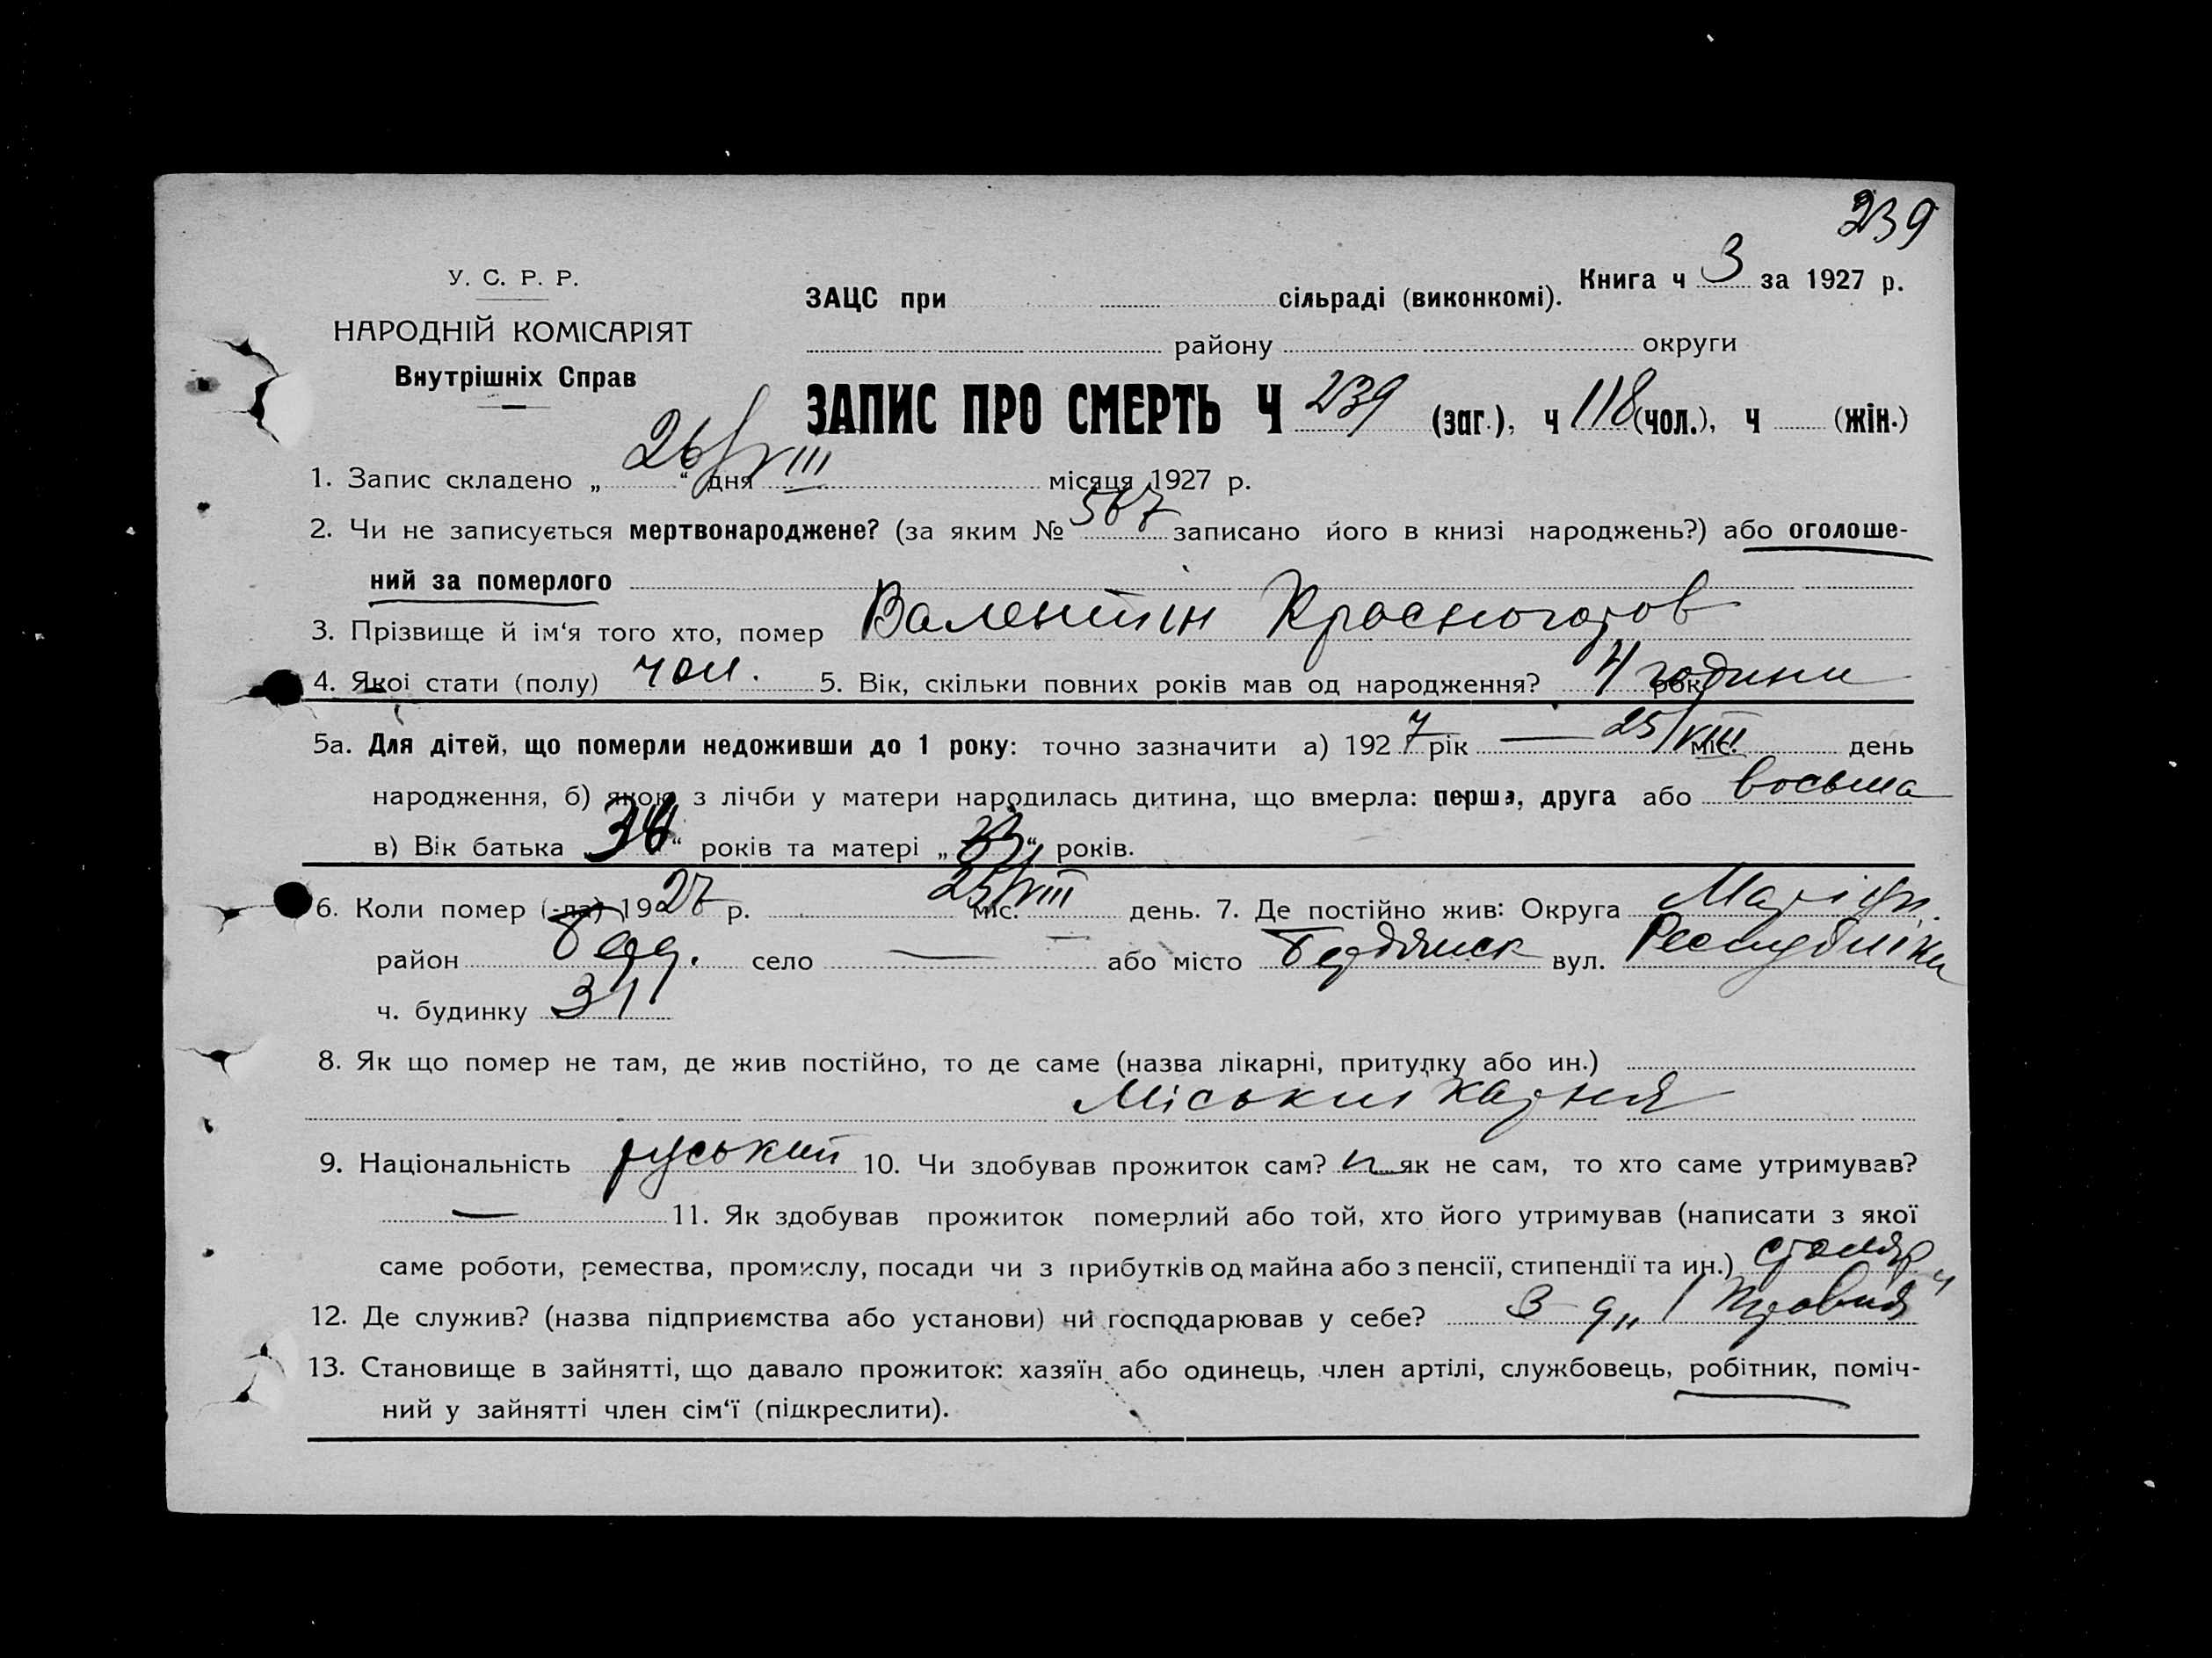 239
У. С. Р. Р.
НАРОДНІЙ КОМІСАРІЯТ
Внутрішніх Справ
Книга ч 3 за 1927 р.
ЗАЦС при сільраді (виконкомі).
району округи
ЗАПИС ПРО СМЕРТЬ Ч 239 (заг.), ч 118 (чол.), ч (жін.)
1. Запис складено „ 26/VIII “ дня місяця 1927 р.
2. Чи не записується мертвонароджене? (за яким № 567 записано його в книзі народжень?) або оголоше-
ний за померлого
3. Прізвище й ім‘я того хто, помер Валентін Красногоров
4. Якої стати (полу) чол. 5. Вік, скільки повних років мав од народження? 4 години рок
5а. Для дітей, що померли недоживши до 1 року: точно зазначити а) 1927 рік — 25/VIII міс. день
народження, б) якою з лічби у матери народилась дитина, що вмерла: перша, друга або восьма
в) Вік батька „ “ років та матері „ “ років.
6. Коли помер (-ла) 1927 р. 25/VIII міс. день. 7. Де постійно жив: Округа Маріуп.
район Берд. село — або місто Бердянск вул. Республіки
ч. будинку 31
8. Як що помер не там, де жив постійно, то де саме (назва лікарні, притулку або ин.)
Міська карня
9. Національність руський 10. Чи здобував прожиток сам? н як не сам, то хто саме утримував?
— 11. Як здобував прожиток померлий або той, хто його утримував (написати з якої
саме роботи, ремества, промислу, посади чи з прибутків од майна або з пенсії, стипендії та ин.) столяр
12. Де служив? (назва підприємства або установи) чи господарював у себе? З-д „1 Травня“
13. Становище в зайнятті, що давало прожиток: хазяїн або одинець, член артілі, службовець, робітник, поміч-
ний у зайнятті член сім‘ї (підкреслити).